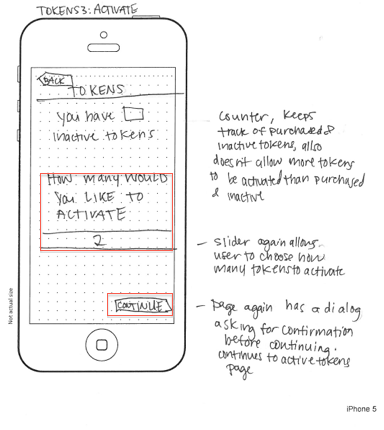 TOKENS3: ACTIVATE
BACK
TOKENS
you have
inactive tokens
HOW MANY WOULD
you LIKE TO
ACTIVATE
2
CONTINUE
counter, keeps
track of purchased &
inactive tokens, also
doesn't allow more tokens
to be activated than purchased
& inactive
- slider again allows
user to choose how
many tokens to activate
- page again has a dialog
asking for confirmation
before continuing.
continues to active tokens
page
Not actual size
iPhone 5